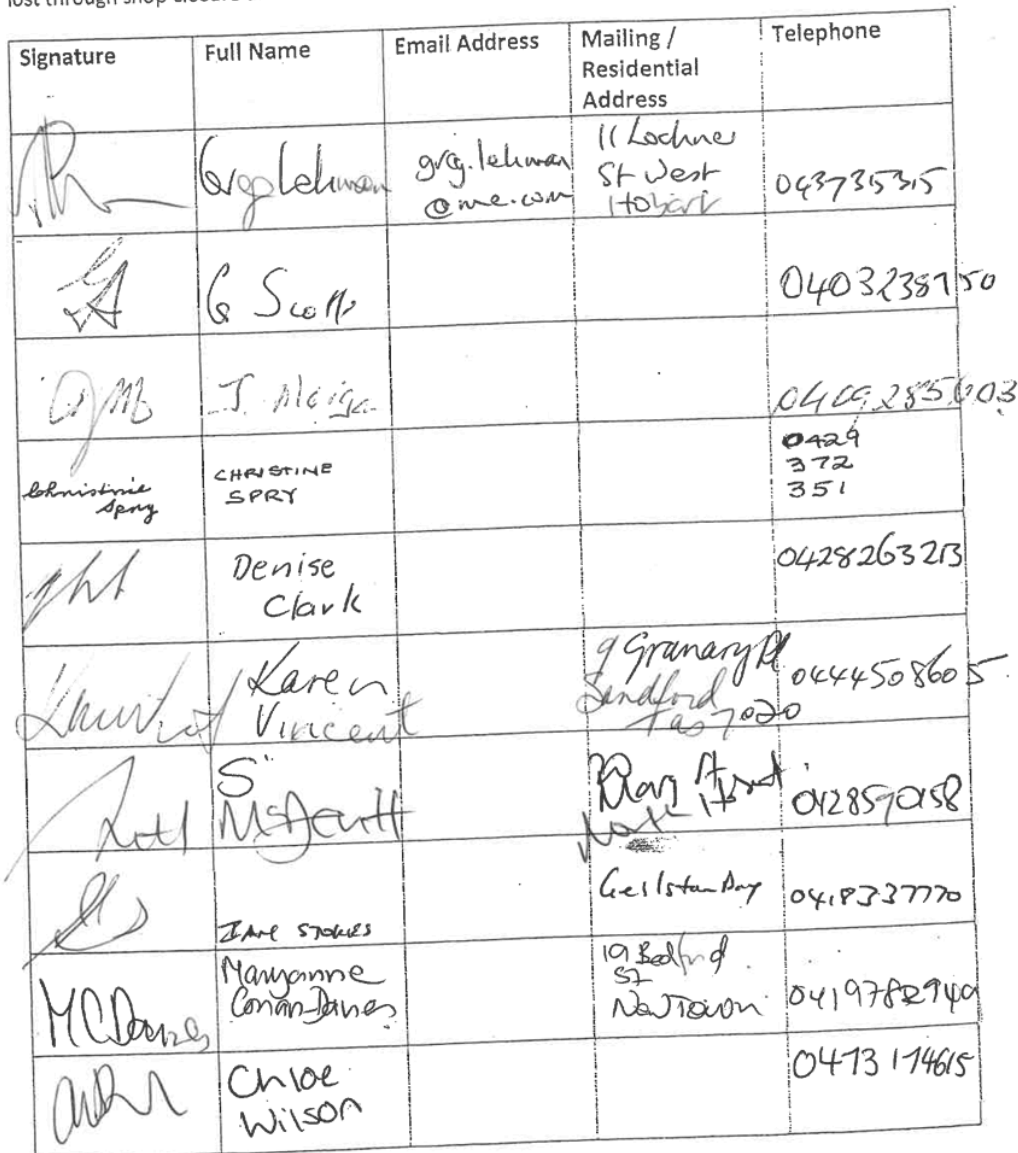 lost through shop closure
Signature Full Name Email Address Mailing / Residential Address Telephone
Greg Lehman greg.lehman @me.com 11 Lochner St West Hobart 043735315
G Scott 0403238750
J. 0409285003
Christine Spry CHRISTINE SPRY 0429 372 351
Denise Clark 0428263213
Karen Vincent 9 Granary Pl Sandford Tas 7020 0444508605
S McDevitt 
JANE STOKES Geilston Bay 0418337770
MCDavies Maryanne Conan-Davies 19 Bedford St New Town 0419782940
Chloe Wilson 0473174615